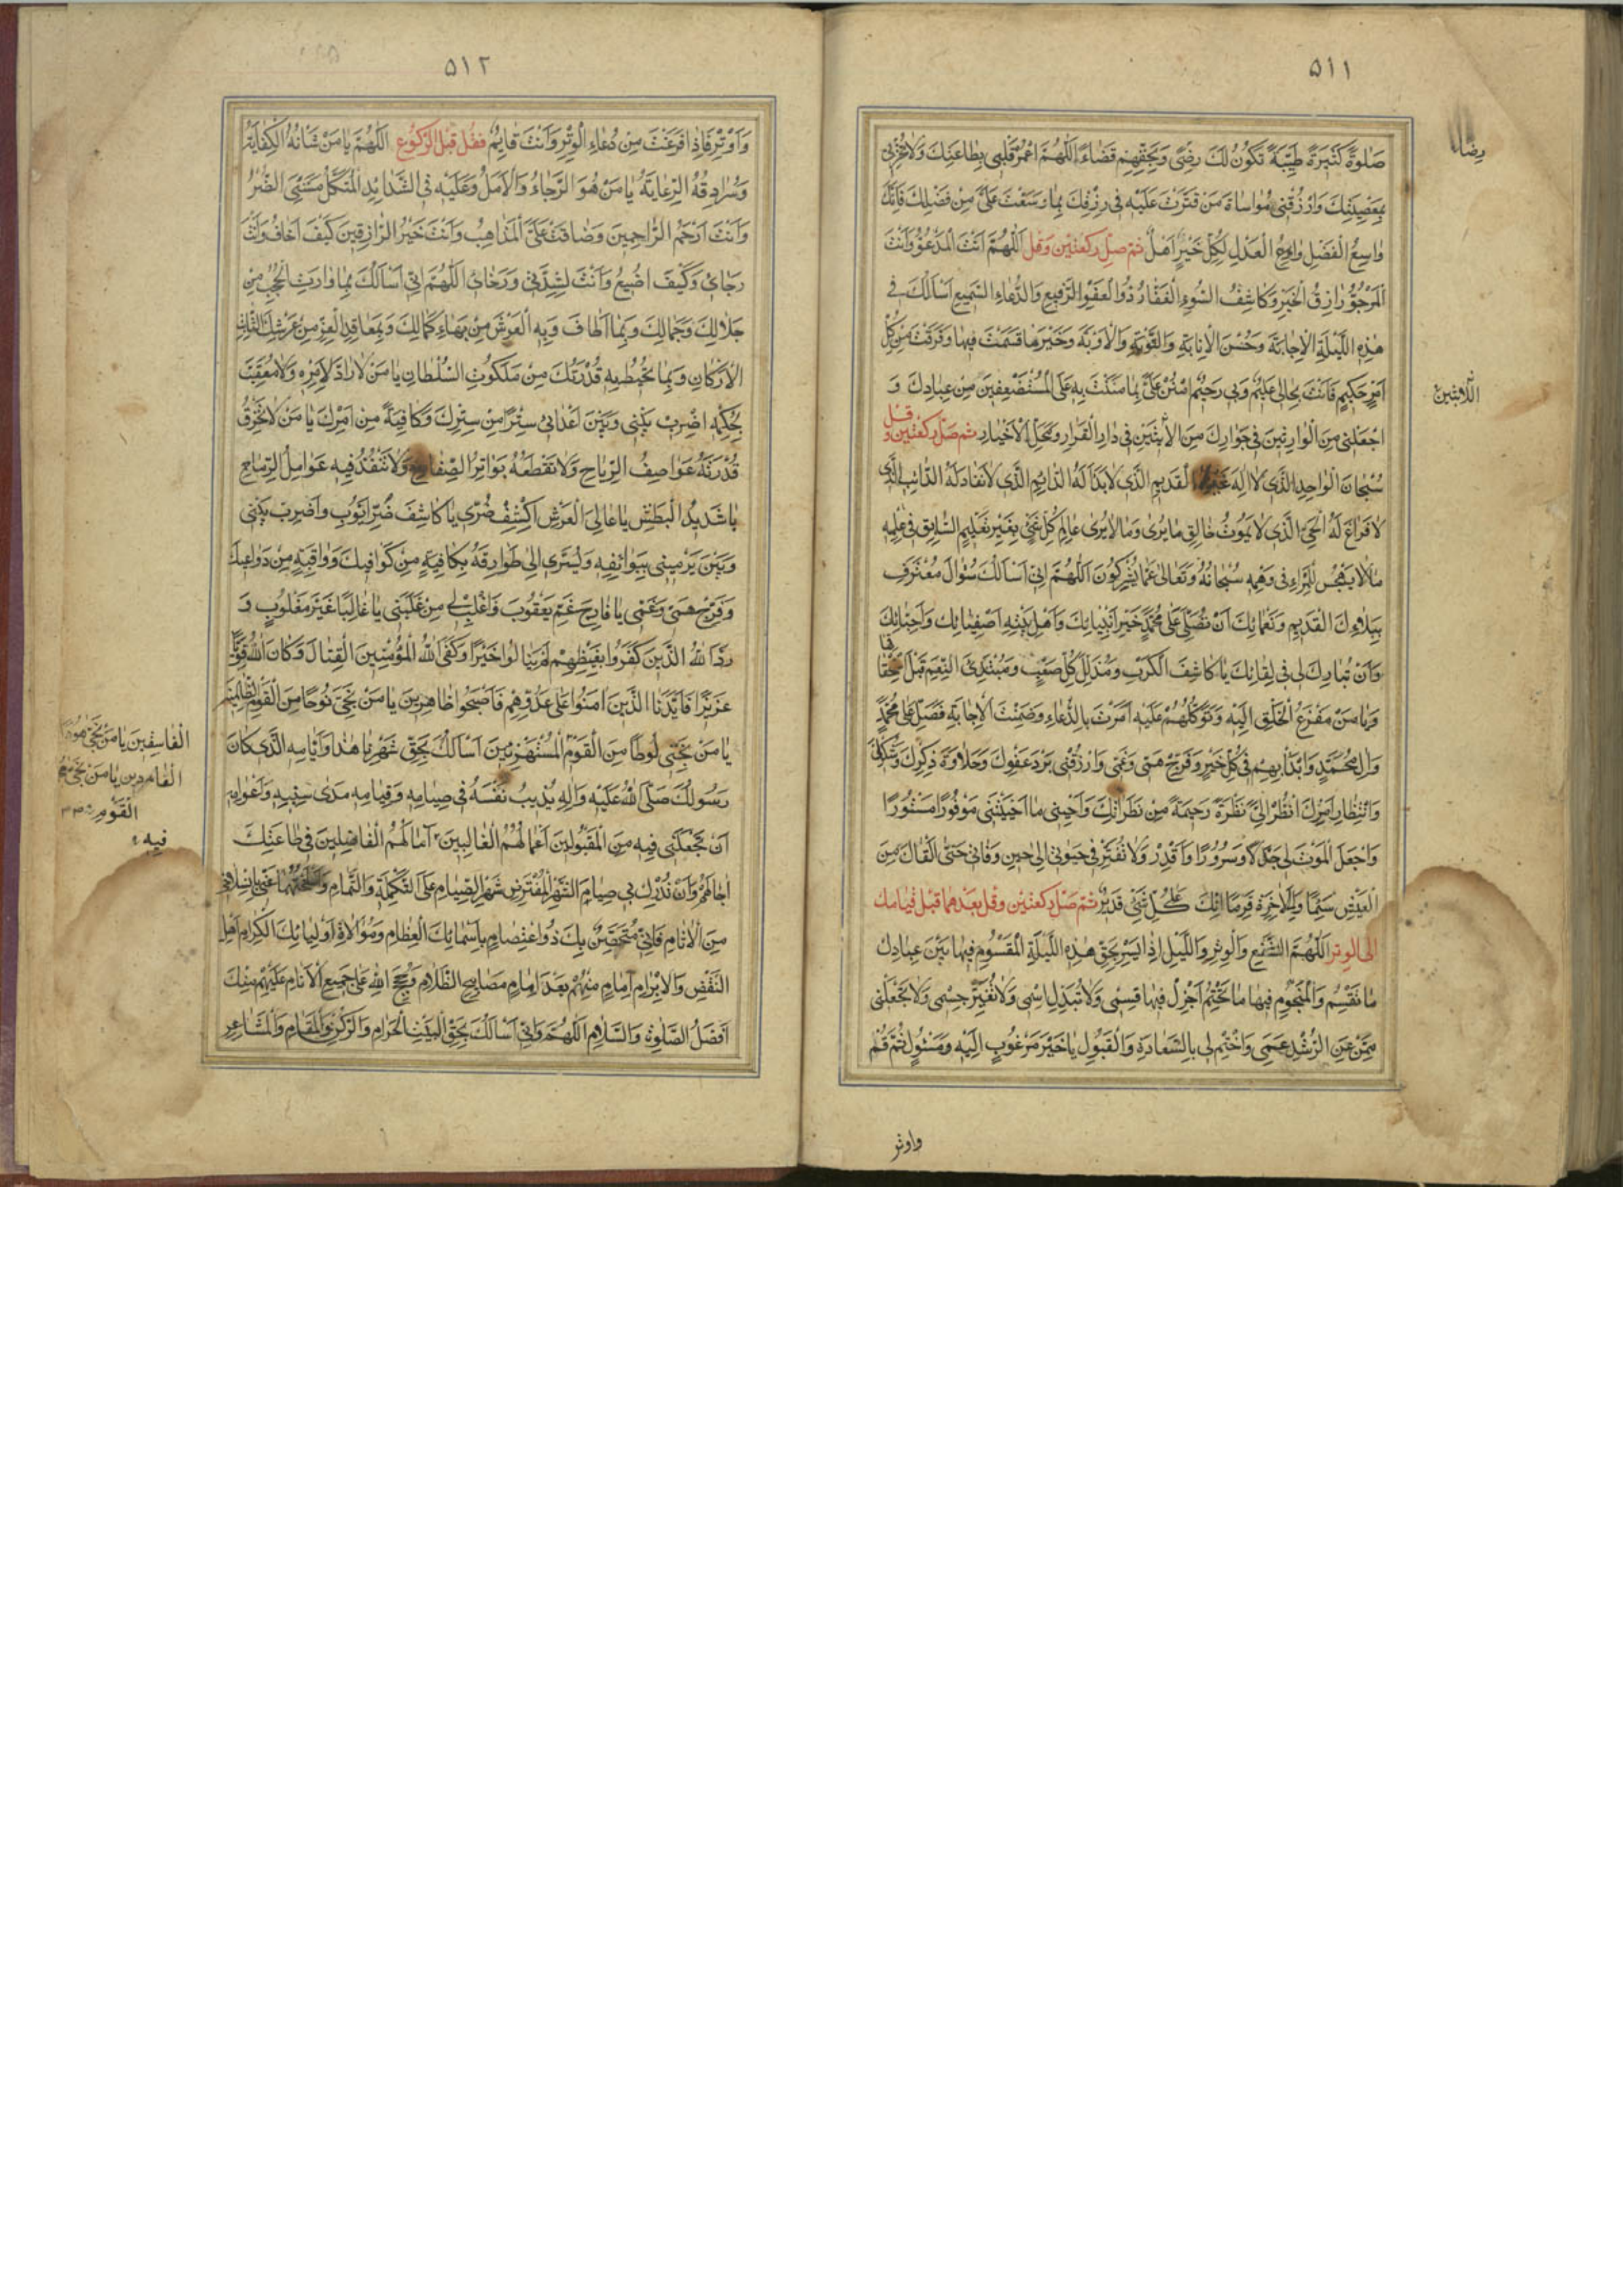 ٥١١
صَلوةً كَثيرَةً طَيِّبَةً تَكُونُ لَكَ رِضًى وَلِحَقِّهِمْ قَضاءً اَللّهُمَّ اعْمُرْ قَلْبى بِطاعَتِكَ وَلا تُخْزِنى
رضاءً
بِمَعْصِيَتِكَ وَارْزُقْنى مُواساةَ مَنْ قَتَّرْتَ عَلَيْهِ فى رِزْقِكَ بِما وَسَّعْتَ عَلَىَّ مِنْ فَضْلِكَ فَاِنَّكَ
واسِعُ الْفَضْلِ وازِعُ الْعَدْلِ لِكُلِّ خَيْرٍ اَهْلٌ ثم صل ركعتين وقل اَللّهُمَّ اَنْتَ الْمَدْعُوُّ وَاَنْتَ
الْمَرْجُوُّ رازِقُ الْخَيْرِ وَكاشِفُ السُّوءِ الْغَفّارُ ذُو الْعَفْوِ الرَّفيعِ وَالدُّعاءِ السَّميعِ اَسْاَلُكَ فى
هذِهِ اللَّيْلَةِ الْاِجابَةَ وَحُسْنَ الْاِنابَةِ وَالتَّوْبَةِ وَالْاَوْبَةَ وَخَيْرَ ما قَسَمْتَ فيها وَفَرَقْتَ مِنْ كُلِّ
اَمْرٍ حَكيمٍ فَاَنْتَ بِحالى عَليمٌ وَبى رَحيمٌ امْنُنْ عَلَىَّ بِما مَنَنْتَ بِهِ عَلَى الْمُسْتَضْعَفينَ مِنْ عِبادِكَ وَ
اللّابِثينَ
اجْعَلْنى مِنَ الْوارِثينَ فى جِوارِكَ مِنَ الاْبِثينَ فى دارِ الْقَرارِ وَمَحَلِّ الْاَخْيارِ ثم صل ركعتين و قل
سُبْحانَ الْواحِدِ الَّذى لا اِلهَ غَيْرُهُ الْقَديمِ الَّذى لا بَدْاَ لَهُ الدّائِمِ الَّذى لا نَفادَ لَهُ الدّائِبِ الَّذى
لا فَراغَ لَهُ الْحَىِّ الَّذى لا يَمُوتُ خالِقِ ما يُرى وَما لا يُرى عالِمِ كُلِّ شَىْءٍ بِغَيْرِ تَعْليمٍ السّابِقِ فى عِلْمِهِ
ما لا يَهْجُسُ لِلْمَرْءِ فى وَهْمِهِ سُبْحانَهُ وَتَعالى عَمّا يُشْرِكُونَ اَللّهُمَّ اِنّى اَسْاَلُكَ سُؤالَ مُعْتَرِفٍ
بِبَلاءِكَ الْقَديمِ وَنَعْمائِكَ اَنْ تُصَلِّىَ عَلى مُحَمَّدٍ خَيْرِ اَنْبِيائِكَ وَاَهْلِ بَيْتِهِ اَصْفِيائِكَ وَاَحِبّائِكَ
وَاَنْ تُبارِكَ لى فى لِقائِكَ يا كاشِفَ الْكَرْبِ وَمُذَلِّلَ كُلِّ صَعْبٍ وَمُبْتَدِئَ النِّعَمِ قَبْلَ اسْتِحْقاقِها
وَيا مَنْ مَفْزَعُ الْخَلْقِ اِلَيْهِ وَتَوَكُّلُهُمْ عَلَيْهِ اَمَرْتَ بِالدُّعاءِ وَضَمِنْتَ الْاِجابَةَ فَصَلِّ عَلى مُحَمَّدٍ
وَالِ مُحَمَّدٍ وَابْدَأْ بِهِمْ فى كُلِّ خَيْرٍ وَفَرِّجْ هَمّى وَغَمّى وَارْزُقْنى بَرْدَ عَفْوِكَ وَحَلاوَةَ ذِكْرِكَ وَشُكْرِكَ
وَانْتِظارِ اَمْرِكَ اُنْظُرْ اِلَىَّ نَظْرَةً رَحيمَةً مِنْ نَظَراتِكَ وَاَحْيِنى ما اَحْيَيْتَنى مَوْفُورًا مَسْتُورًا
وَاجْعَلِ الْمَوْتَ لى جَذَلًا وَسُرُورًا وَاقْدِرْ وَلا تُقَتِّرْ فى حَيوتى اِلى حينِ وَفاتى حَتّى اَلْقاكَ مِنَ
الْعَيْشِ سَئِمًا وَاِلَى الْاخِرَةِ قَرِمًا اِنَّكَ عَلى كُلِّ شَىْءٍ قَديرٌ ثم صل ركعتين وقل بعدهما قبل قيامك
الى الوتر اَللّهُمَّ رَبَّ الشَّفْعِ وَالْوِتْرِ وَاللَّيْلِ اِذا يَسْرِ بِحَقِّ هذِهِ اللَّيْلَةِ الْمَقْسُومِ فيها بَيْنَ عِبادِكَ
ما تَقْسِمُ وَالْمَحْتُومِ فيها ما تَحْتِمُ اَجْزِلْ فيها قِسْمى وَلا تُبَدِّلِ اسْمى وَلا تُغَيِّرْ جِسْمى وَلا تَجْعَلْنى
مِمَّنْ عَنِ الرُّشْدِ عَمِىَ وَاخْتِمْ لى بِالسَّعادَةِ وَالْقَبُولِ يا خَيْرَ مَرْغُوبٍ اِلَيْهِ وَمَسْئُولٍ ثُمَّ قُمْ
واوتر
٥١٢
وَاَوْتِرْ فَاِذا فَرَغْتَ مِنْ دُعاءِ الْوِتْرِ وَاَنْتَ قايِمٌ فقل قبل الركوع اَللّهُمَّ يا مَنْ شَاْنُهُ الْكِفايَةُ
وَسُرادِقُهُ الرِّعايَةُ يا مَنْ هُوَ الرَّجاءُ وَالْاَمَلُ وَعَلَيْهِ فى الشَّدائِدِ الْمُتَّكَلُ مَسَّنِىَ الضُّرُّ
وَاَنْتَ اَرْحَمُ الرّاحِمينَ وَضاقَتْ عَلَىَّ الْمَذاهِبُ وَاَنْتَ خَيْرُ الرّازِقينَ كَيْفَ اَخافُ وَاَنْتَ
رَجائى وَكَيْفَ اَضيعُ وَاَنْتَ لِشِدَّتى وَرَخائى اَللّهُمَّ اِنّى اَسْاَلُكَ بِما وارَتِ الْحُجُبُ مِنْ
جَلالِكَ وَجَمالِكَ وَبِما اَطافَ بِهِ الْعَرْشَ مِنْ بَهاءِ كَمالِكَ وَبِمَعاقِدِ الْعِزِّ مِنْ عَرْشِكَ الثّابِتِ
الْاَرْكانِ وَبِما تُحيطُ بِهِ قُدْرَتُكَ مِنْ مَلَكُوتِ السُّلْطانِ يا مَنْ لا رادَّ لِاَمْرِهِ وَلا مُعَقِّبَ
لِحُكْمِهِ اضْرِبْ بَيْنى وَبَيْنَ اَعْدائى سِتْرًا مِنْ سِتْرِكَ وَكافِيَةً مِنْ اَمْرِكَ يا مَنْ لا تَخْرِقُ
قُدْرَتَهُ عَواصِفُ الرِّياحِ وَلا تَقْطَعُهُ بَواتِرُ الصِّفاحِ وَلا تَنْفُذُ فيهِ عَوامِلُ الرِّماحِ
يا شَديدَ الْبَطْشِ يا عالِىَ الْعَرْشِ اكْشِفْ ضُرّى يا كاشِفَ ضُرِّ اَيُّوبَ وَاضْرِبْ بَيْنى
وَبَيْنَ مَنْ يَرْمينى بِبَوائِقِهِ وَيَسْرى اِلَىَّ طَوارِقُهُ بِكافِيَةٍ مِنْ كَوافيكَ وَواقِيَةٍ مِنْ دَواعيكَ
وَفَرِّجْ هَمّى وَغَمّى يا فارِجَ غَمِّ يَعْقُوبَ وَاغْلِبْ لى مَنْ غَلَبَنى يا غالِبًا غَيْرَ مَغْلُوبٍ وَ
رَدَّ اللهُ الَّذينَ كَفَرُوا بِغَيْظِهِمْ لَمْ يَنالُوا خَيْرًا وَكَفَى اللهُ الْمُؤْمِنينَ الْقِتالَ وَكانَ اللهُ قَوِيًّا
عَزيزًا فَاَيَّدْنَا الَّذينَ امَنُوا عَلى عَدُوِّهِمْ فَاَصْبَحُوا ظاهِرينَ يا مَنْ نَجّى نُوحًا مِنَ الْقَوْمِ الظّالِمينَ
يا مَنْ نَجّى لُوطًا مِنَ الْقَوْمِ الْمُسْتَهْزِئينَ اَسْاَلُكَ بِحَقِّ شَهْرِنا هذا وَاَيّامِهِ الَّذى كانَ
الْفاسِقينَ يا مَنْ نَجّى هُودًا
القَوْمِ
رَسُولُكَ صَلَّى اللهُ عَلَيْهِ وَالِهِ يُذيبُ نَفْسَهُ فى صِيامِهِ وَقِيامِهِ مَدى سِنيهِ وَاَعْوامِهِ
فيهِ
اَنْ تَجْعَلَنى فيهِ مِنَ الْمَقْبُولينَ اَعْمالُهُمُ الْغالِبينَ آمالَهُمُ الْفاضِلينَ فى طاعَتِكَ
اجالَهُمْ وَاَنْ تُدْرِكَ بى صِيامَ الشَّهْرِ الْمُفْتَرَضِ شَهْرِ الصِّيامِ عَلَى التَّكْمِلَةِ وَالتَّمامِ
مِنَ الْاثامِ فَاِنّى مُتَحَصِّنٌ بِكَ ذُو اعْتِصامٍ بِاَسْمائِكَ الْعِظامِ وَمُوالاةِ اَوْلِيائِكَ الْكِرامِ اَهْلِ
النَّقْضِ وَالْاِبْرامِ اِمامٍ مِنْهُمْ بَعْدَ اِمامٍ مَصابيحِ الظَّلامِ وَحُجَجِ اللهِ عَلى جَميعِ الْاَنامِ عَلَيْهِمْ مِنْكَ
اَفْضَلُ الصَّلوةِ وَالسَّلامِ اَللّهُمَّ وَاِنّى اَسْاَلُكَ بِحَقِّ الْبَيْتِ الْحَرامِ وَالرُّكْنِ وَالْمَقامِ وَالْمَشاعِرِ